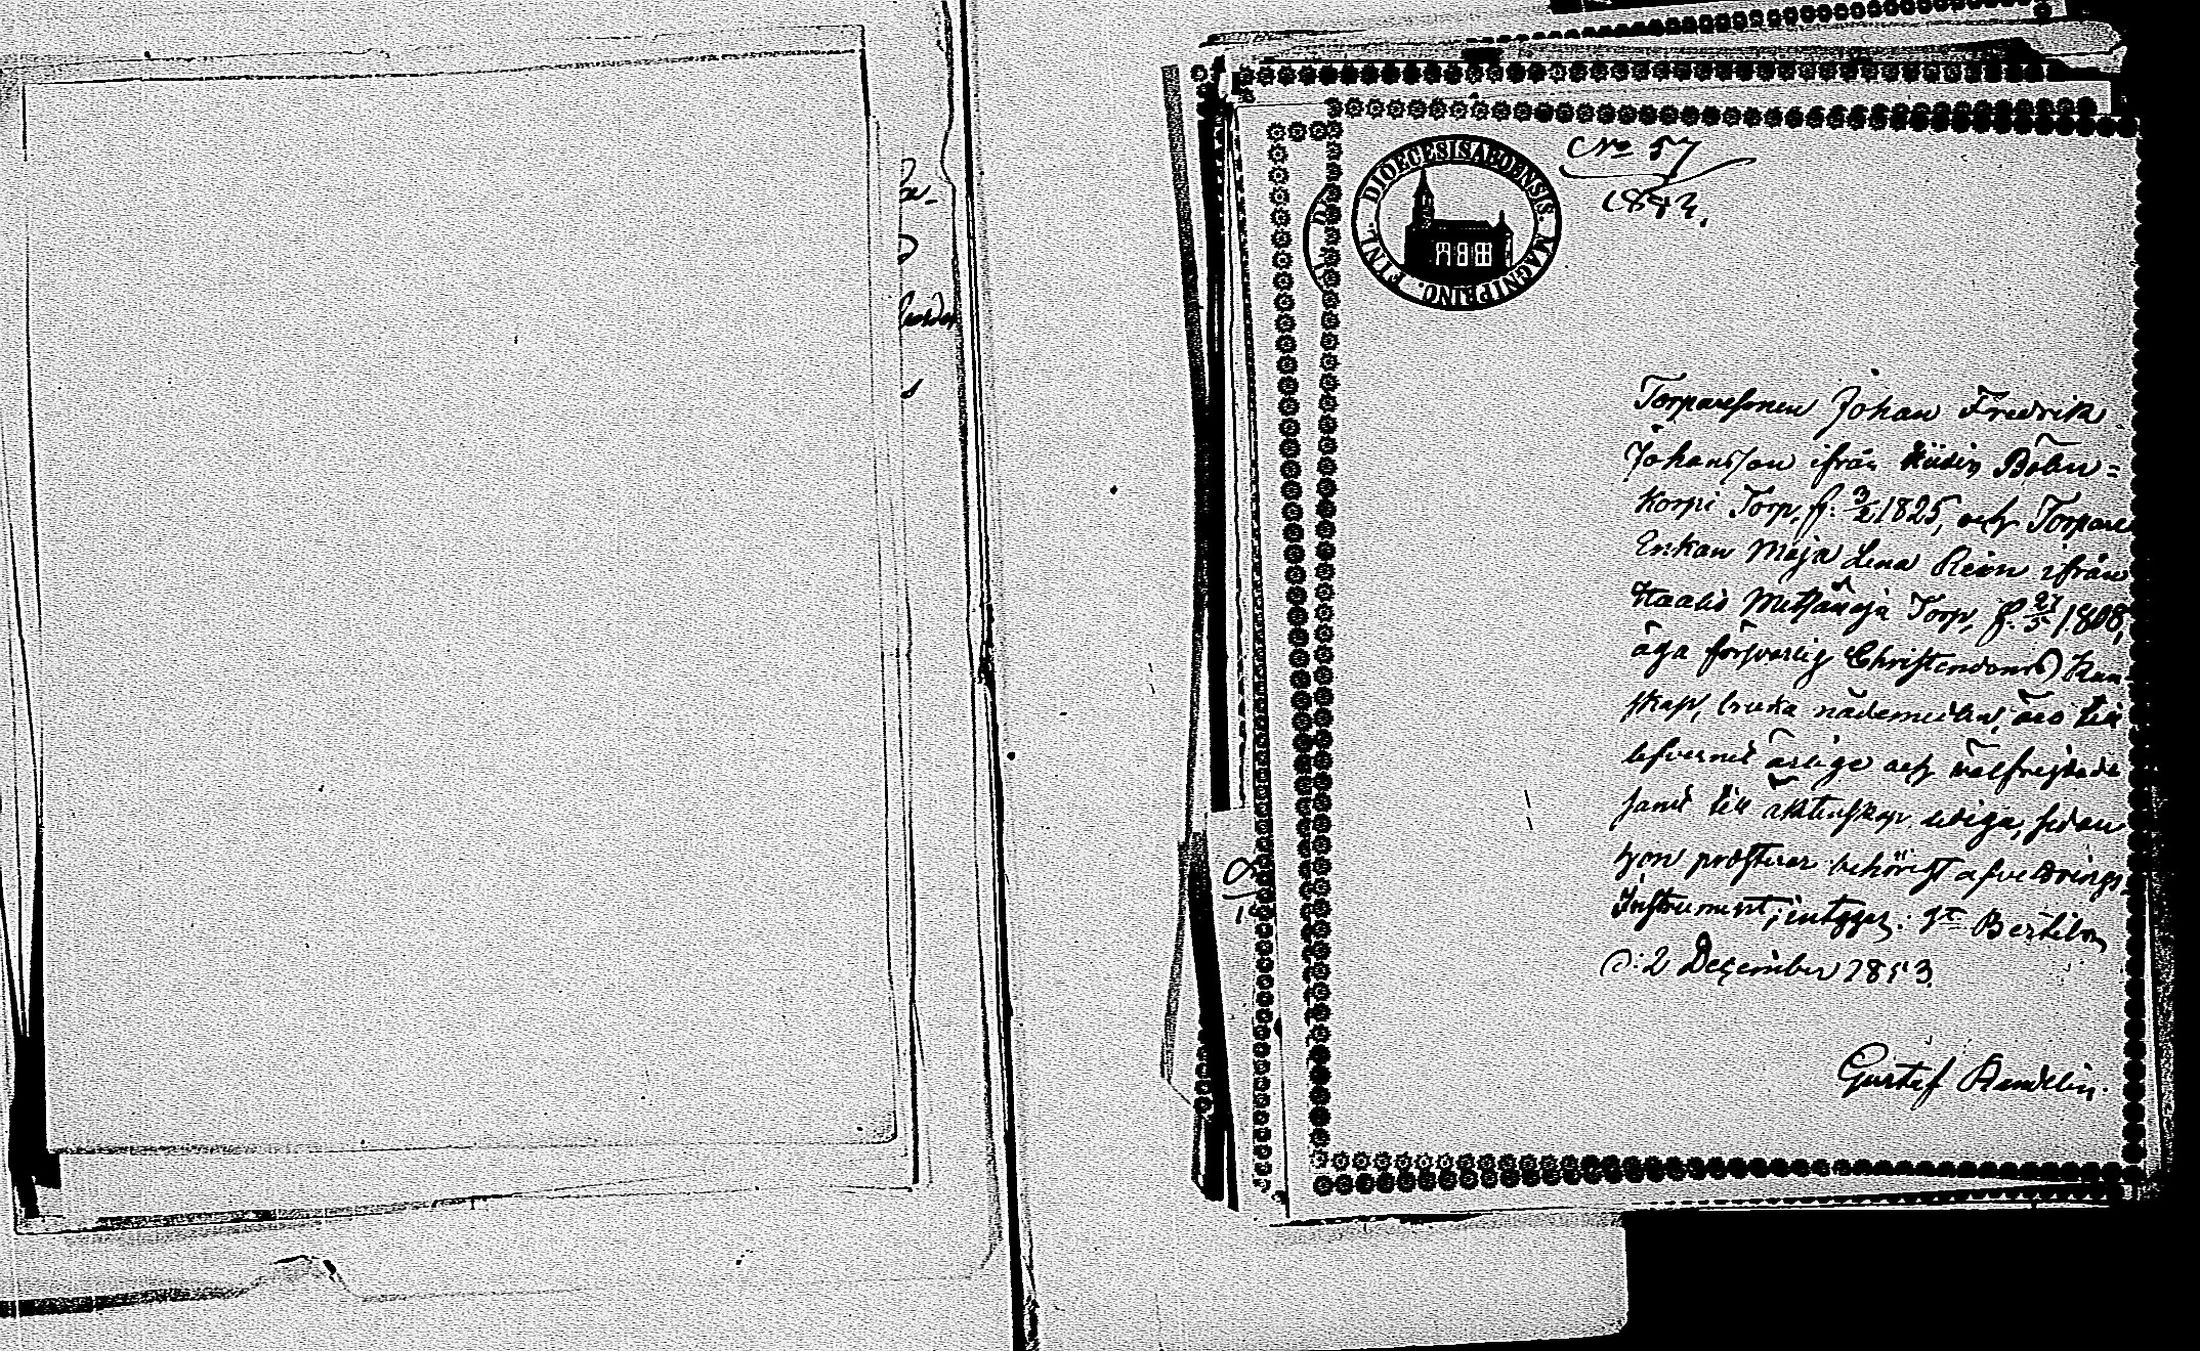 DIOECESIS ABOENSIS. MAGNI PRINC. FINL.
No 57
Torparesonen Johan Fredrik
Johansson ifrån
korpi Torp, f. 3/2 1825, och Torpare
Enkan Maja Lena ifrån
Torp, f. 27/5 1808,
äga försvarlig Christendoms Kun-
skap, bruka nådemedlen, äro till
lefvernet ärlige och välfrejdade
samt till äktenskap ledige, sedan
hon præsterar behörigt afvittrings
Instrument; intygar.
d: 2 December 1853.
Gustef